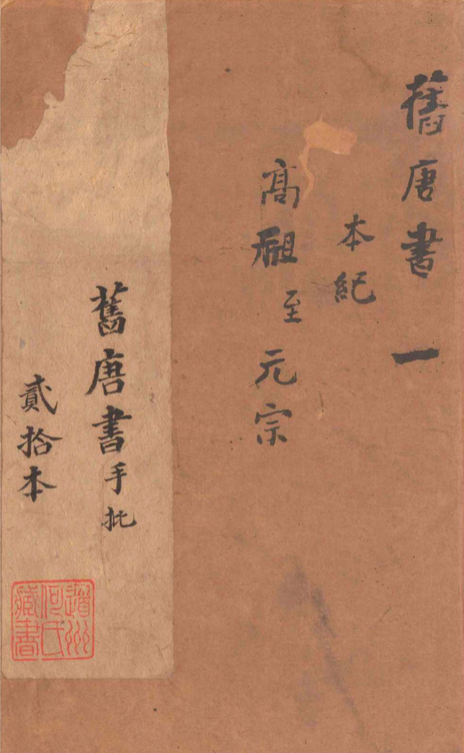 舊唐書 一
本紀
高祖至元宗
舊唐書手批
貳拾本
道州何氏藏書